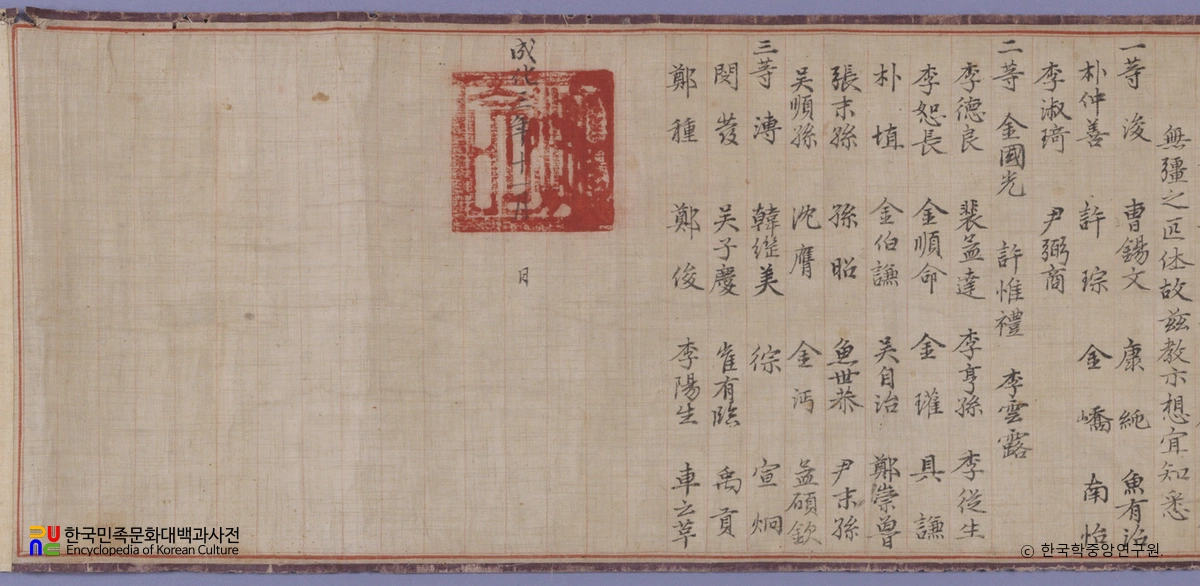 無疆之匹休故茲敎示想宜知悉
一等 浚 曺錫文 康純 魚有沼
朴仲善 許琮 金嶠 南怡
李淑琦 尹弼商
二等 金國光 許惟禮 李雲露
李德良 裴孟達 李亨孫 李從生
李恕長 金順命 金瓘 具謙
朴埴 金伯謙 吳自治 鄭崇魯
張末孫 孫昭 魚世恭 尹末孫
吳順孫 沈膺 金沔 孟碩欽
三等 溥 韓繼美 徖 宣炯
閔發 吳子慶 崔有臨 禹貢
鄭種 鄭俊 李陽生 車云革
成化三年十一月 日
한국민족문화대백과사전
Encyclopedia of Korean Culture
© 한국학중앙연구원.